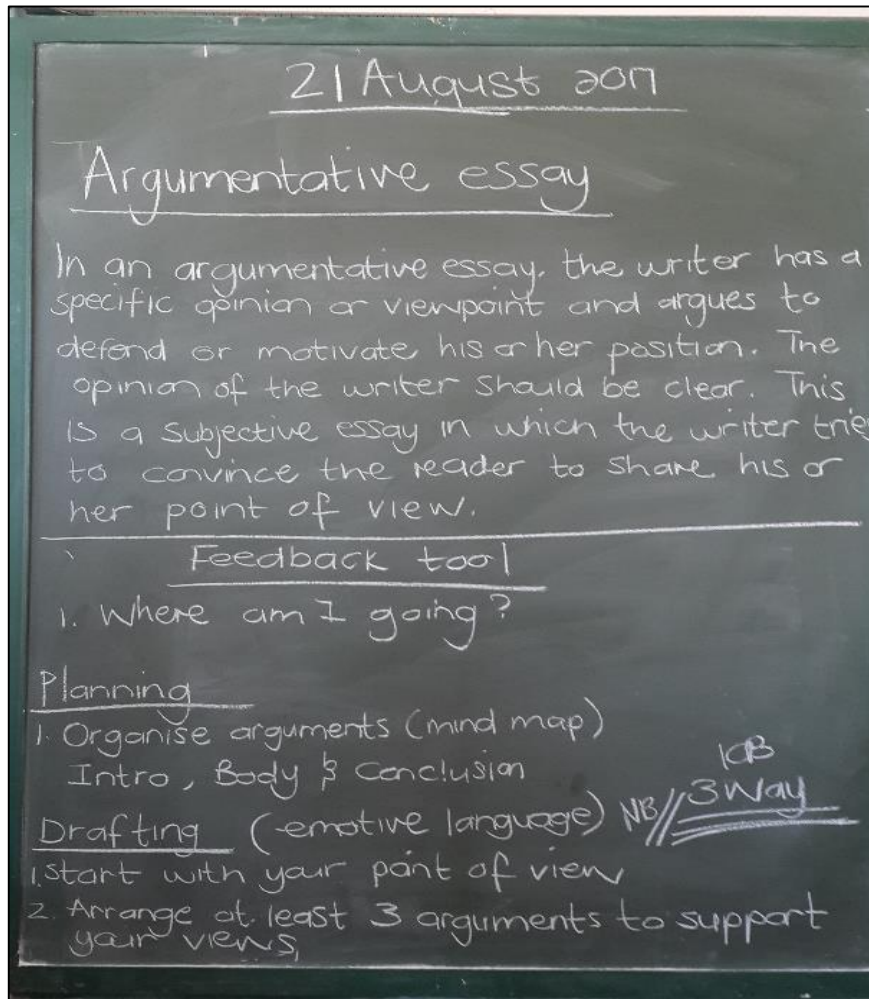 21 August 2017
Argumentative essay
In an argumentative essay, the writer has a
specific opinion or viewpoint and argues to
defend or motivate his or her position. The
opinion of the writer should be clear. This
is a subjective essay in which the writer tries
to convince the reader to share his or
her point of view.
Feedback tool
1. Where am I going?
Planning
1. Organise arguments (mind map)
Intro, Body & Conclusion
Drafting (emotive language) NB// 3 Way
1. Start with your point of view
2. Arrange at least 3 arguments to support
your views,